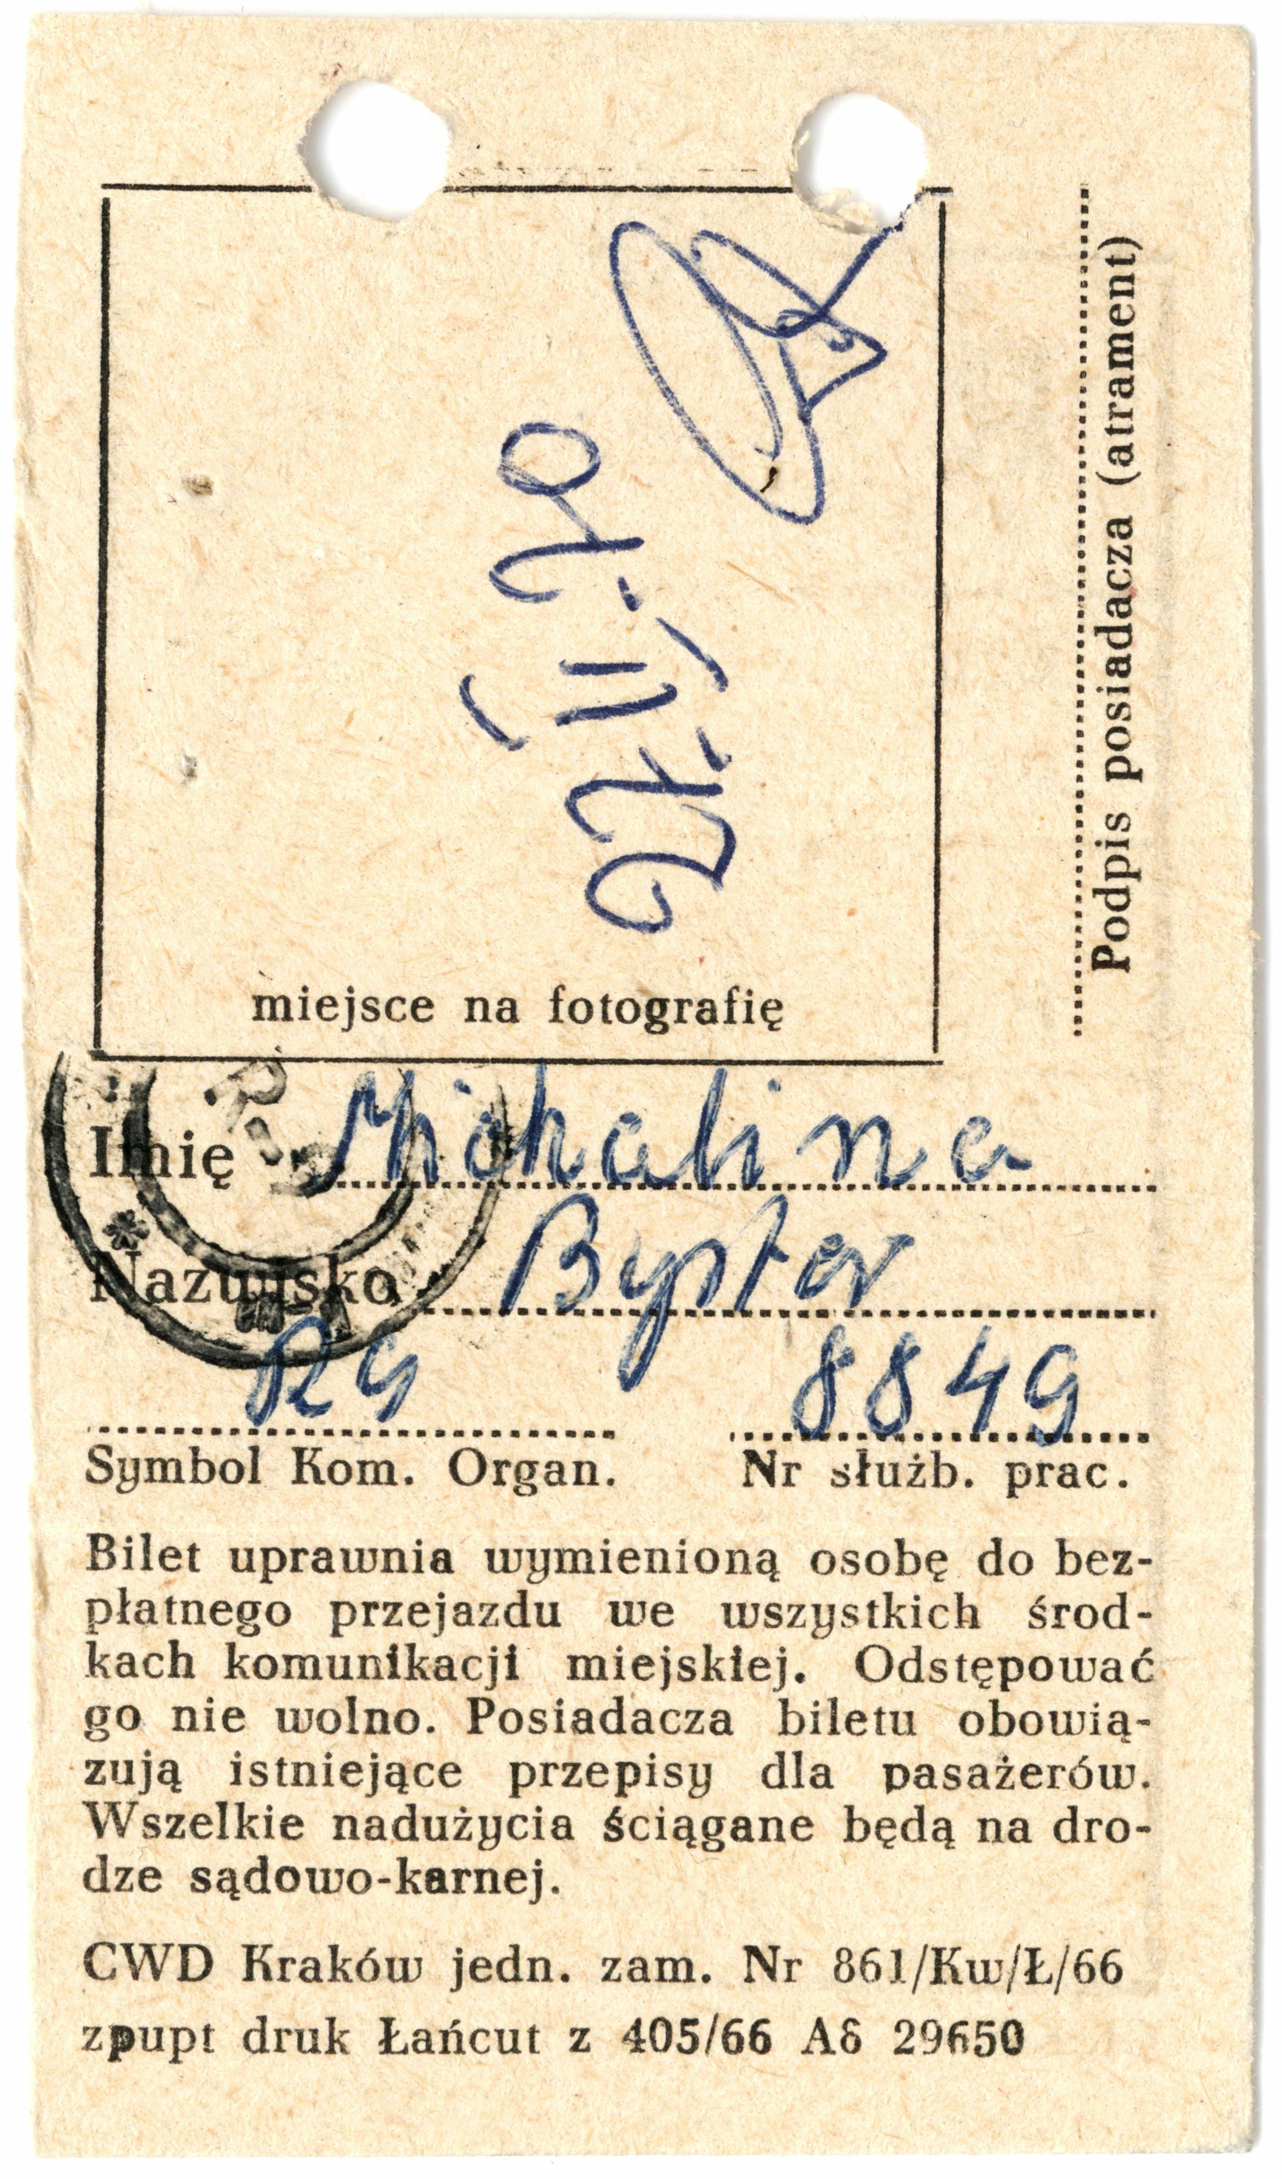 miejsce na fotografię
Podpis posiadacza (atrament)
Imię Michalina
Nazwisko Byster
R4 8849
Symbol Kom. Organ. Nr służb. prac.
Bilet uprawnia wymienioną osobę do bez-
płatnego przejazdu we wszystkich środ-
kach komunikacji miejskiej. Odstępować
go nie wolno. Posiadacza biletu obowią-
zują istniejące przepisy dla pasażerów.
Wszelkie nadużycia ściągane będą na dro-
dze sądowo-karnej.
CWD Kraków jedn. zam. Nr 861/Kw/Ł/66
zpupt druk Łańcut z 405/66 A6 29650